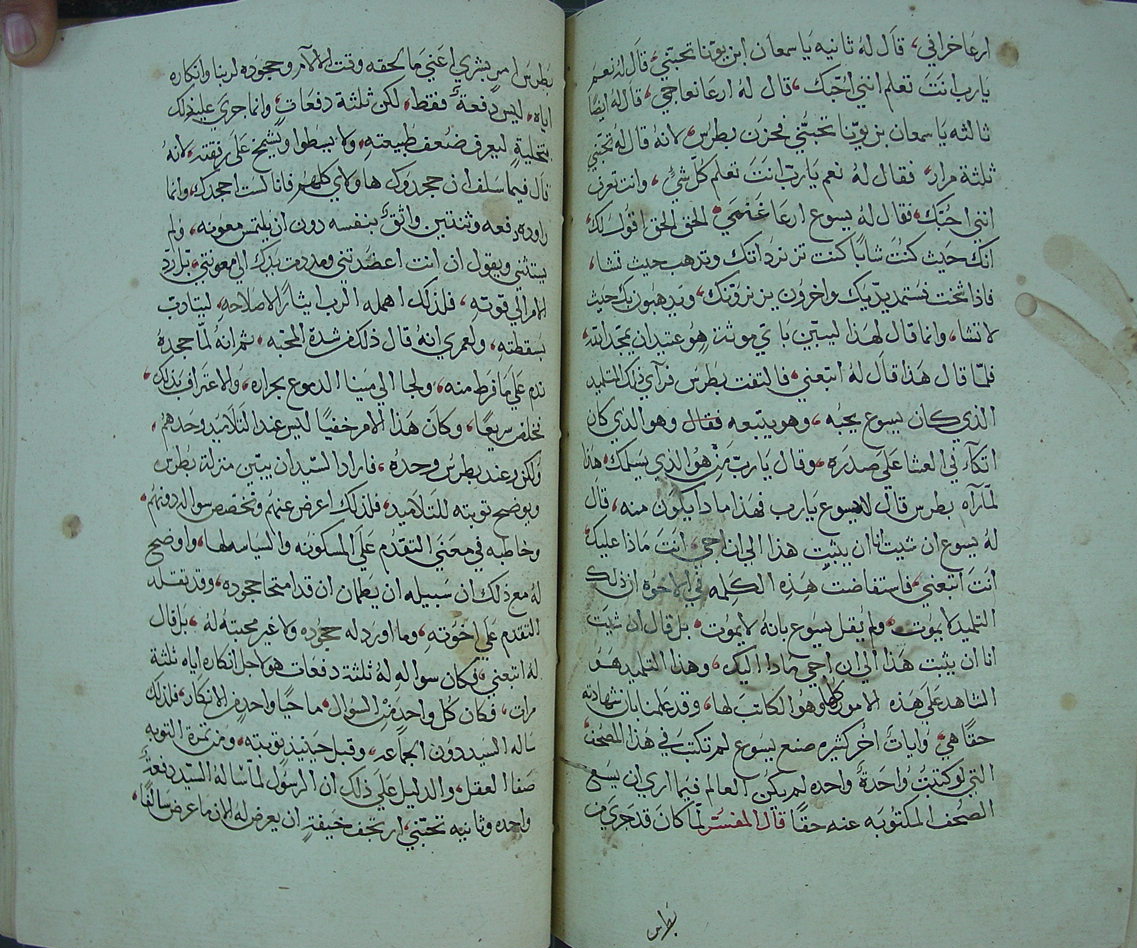 ارعا خرافي، قال له ثانيه يا سمعان ابن يونا تحبني، قال له نعم
يا رب انت تعلم انني احبك، قال له ارعا نعاجي، قال له ايضا
ثالثه يا سمعان بن يونا تحبني فحزن بطرس، لانه قال له تحبني
ثلثة مرار، فقال له نعم يا رب انت تعلم كل شي، وانت تعرف
انني احبك، فقال له يسوع ارعا غنمي، الحق الحق اقول لك،
انك حيث كنت شابا كنت تزنر ذاتك وتذهب حيث تشا،
فاذا شخت فستمد يديك واخرون يزنرونك، ويذهبون بك حيث
لا تشا، وانما قال لهذا ليبين باي موتة هو عتيد ان يمجد الله،
فلما قال هذا قال له اتبعني، فالتفت بطرس فرآي ذلك التلميد
الذي كان يسوع يحبه، وهو يتبعه فقال وهو الذي كان
اتكاء في العشا على صدره، وقال يا رب من هو الذي يسلمك، هذا
لما رآه بطرس قال لايسوع يا رب فهذا ماذا يكون منه، قال
له يسوع ان شيت انا ان يثبت هذا الي ان اجي، انت ماذا عليك
انت اتبعني، فاستفاضت هذه الكلمه في الاخوه ان ذلك
التلميد لا يموت، ولم يقل يسوع بانه لا يموت، بل قال ان شيت
انا ان يثبت هذا الي ان اجي ماذا اليك، وهذا التلميد هو
الشاهد علي هذه الامور كلها وهو الكاتب لها، وقد علمنا بان شهادته
حقا هي، وايات اخر كثيره صنع يسوع لم تكتب في هذا المصحف
التي لو كتبت واحدة واحده لم يكن العالم فيما اري ان يسع
الصحف المكتوبه عنه حقا قال المفسر لما كان قد جري من
بطرس
بطرس امر بشري اعني ما لحقه وقت الالام وجحوده لربنا وانكاره
اياه، ليس دفعة فقط، لكن ثلثة دفعات، وانما جري عليه ذلك
بتخلية ليعرف ضعف طبيعته، ولا يسطوا ويشمخ علي رفقته، لانه
قال فيما سلف ان جحدوك هاولاي كلهم فانا لست اجحدك، وانما
دفعه وثنتين واثق بنفسه دون ان يلتمس معونه، ولم
يستثني ويقول ان انت اعضدتني ومددت يدك الي معونتي،
فلذلك اهمله الرب ايثارا لاصلاحه، ليتادب
بسقطته، ولعمري انه قال ذلك من شدة المحبه، ثم انه لما جحده
ندم علي ما فرط منه، ولجا الي مينا الدموع بحراره، والاعتراف بذلك،
فخلص سريعا، وكان هذا الامر خفيا ليس عند التلاميد وحدهم،
ولكن وعند بطرس وحده، فاراد السيد ان يبين منزلة بطرس
ويوضح توبته للتلاميد، فلذلك اعرض عنهم وتخصص سواله دونهم،
وخاطبه في معني التقدم علي المسكونه والسياسه لها، واوضح
له مع ذلك ان سبيله ان يطمان ان قد امتحا جحوده، وقد تقلد
التقدم علي اخوته، وما اورد له جحوده ولا غير محبته له، بل قال
له اتبعني، فكان سواله له ثلثة دفعات هو لاجل انكاره اياه ثلثة
مرات، فكان كل واحد من السوال، ماحيا واحد من الانكار، فلذلك
ساله السيد دون الجماعه، وقبل حينيذ توبته، ومن ثمرة التوبه
صفا العقل، والدليل علي ذلك ان الرسول لما ساله السيد دفعة
واحده وثانيه تحبني، ارتجف خيفة ان يعرض له الان ما عرض سالفا،